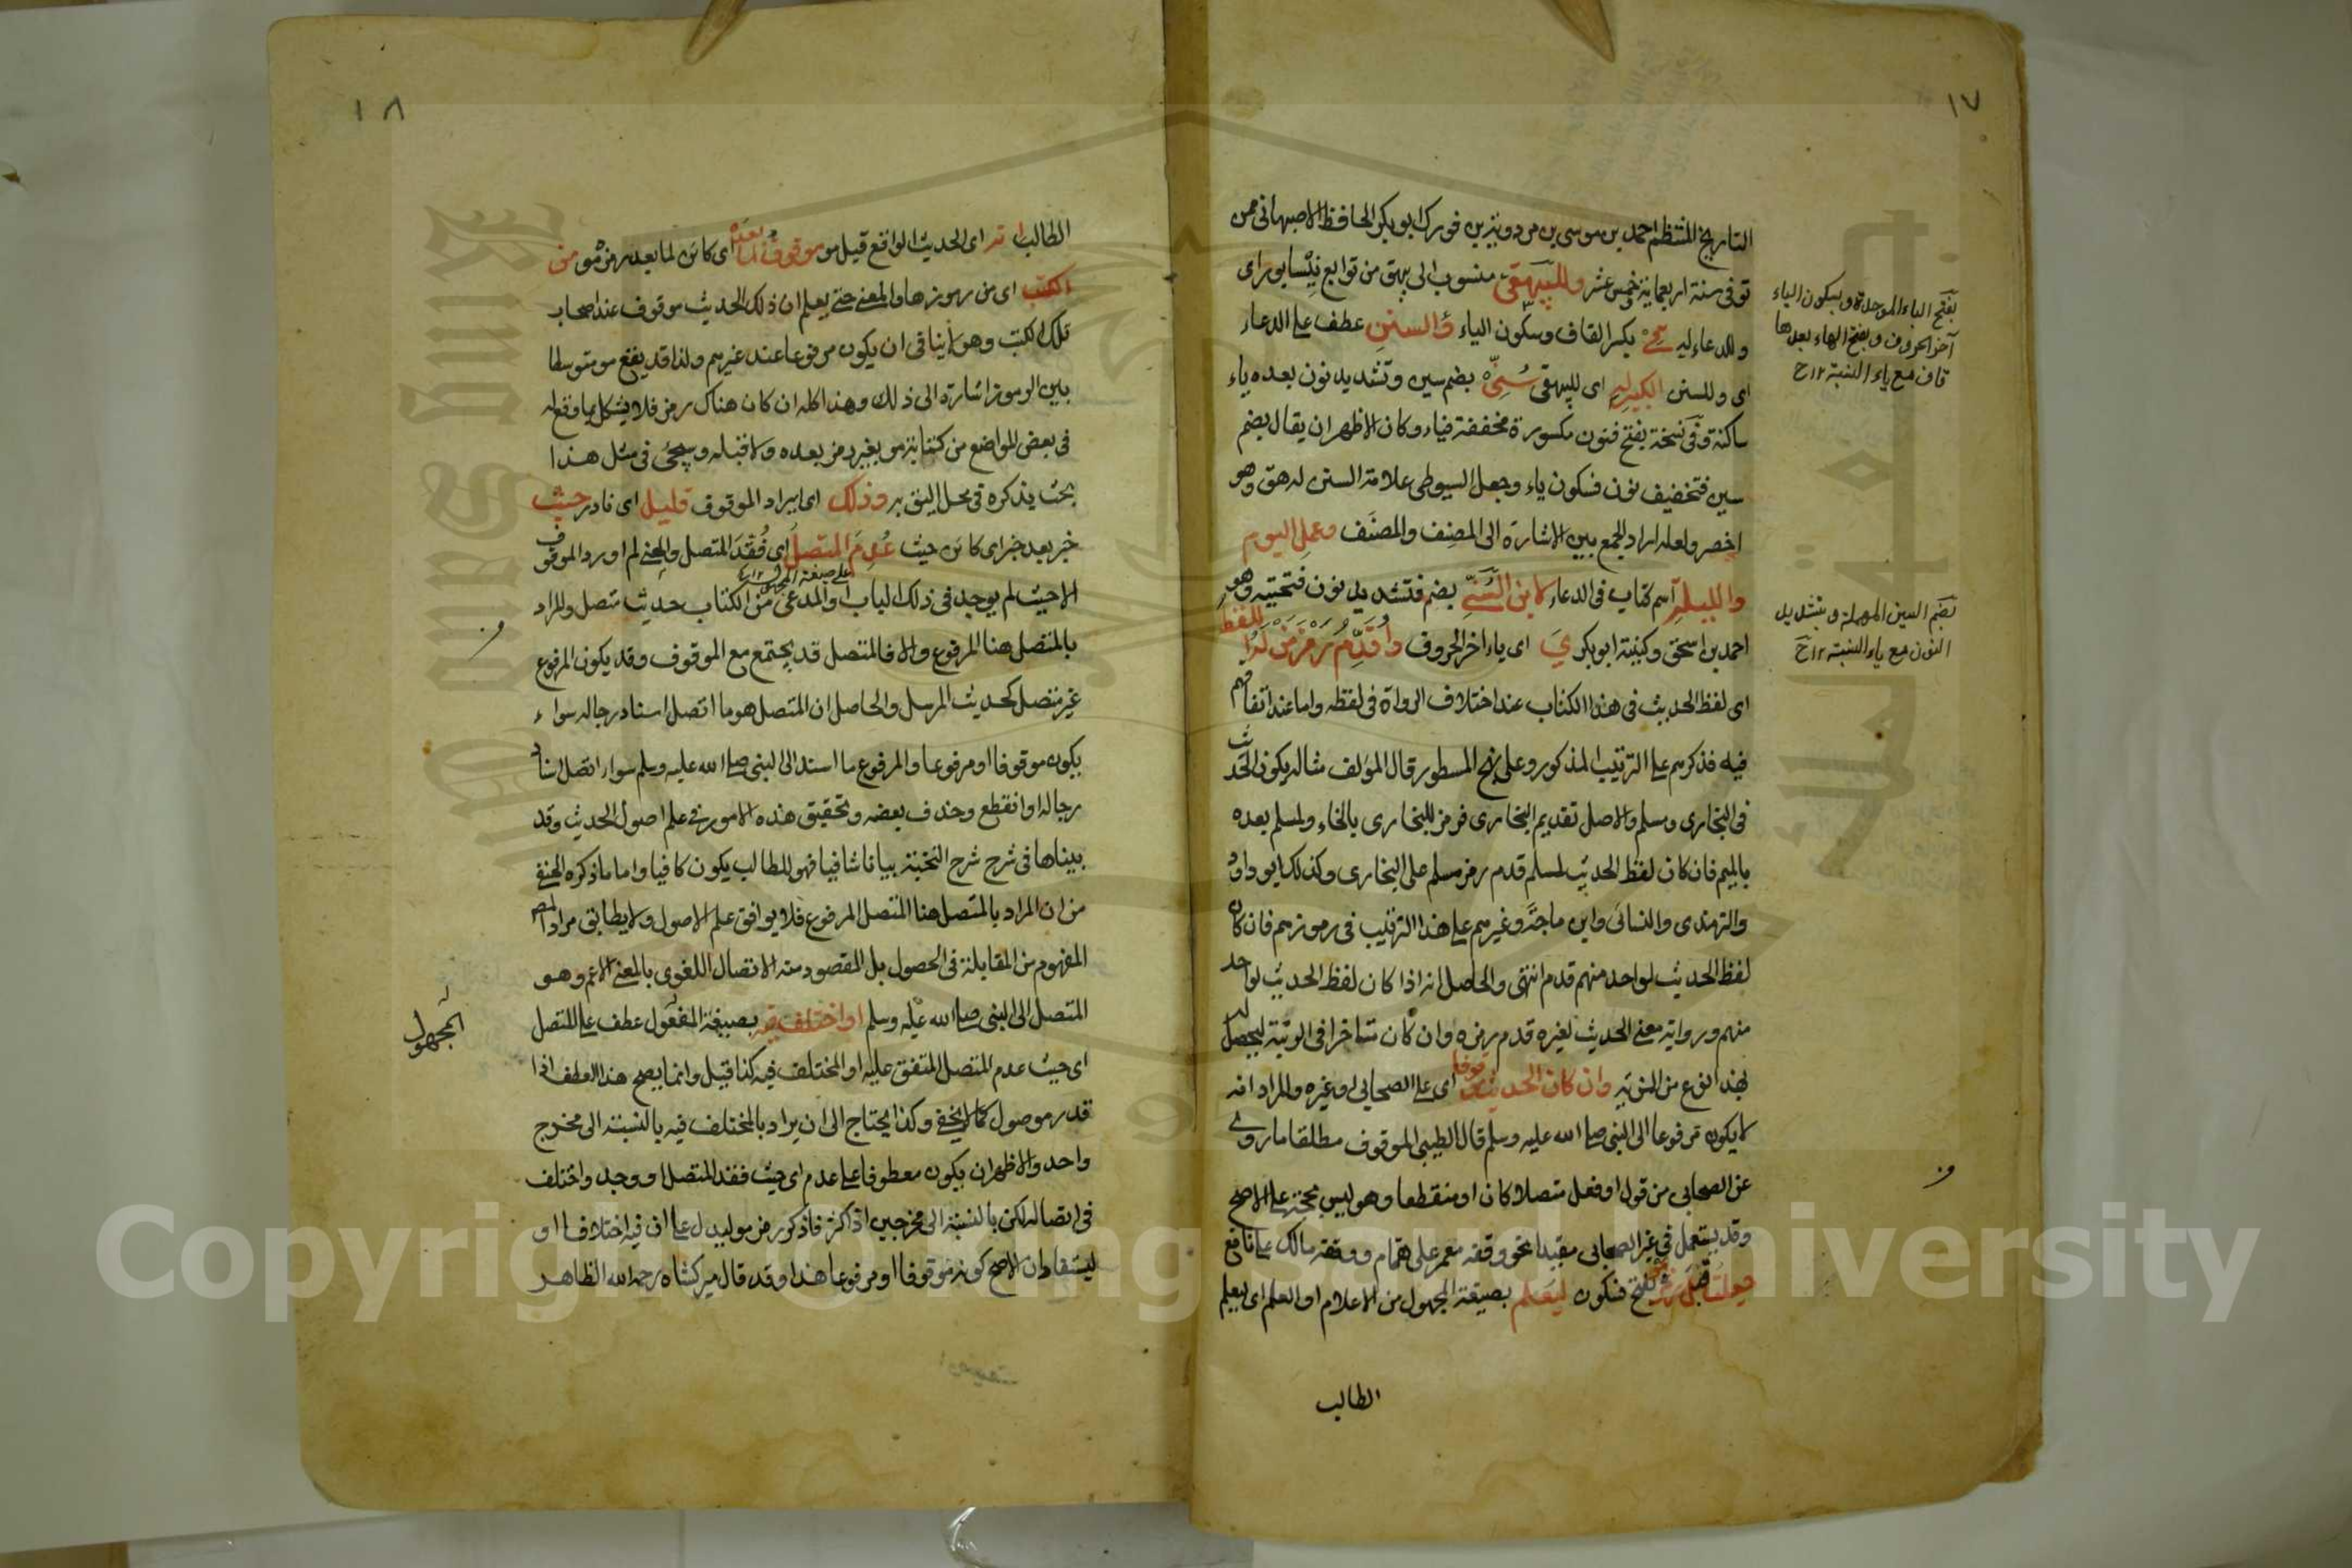 ١٧
التاريخ المنتظم احمد بن موسى بن مردويه بن فورك ابو بكر الحافظ الاصبهاني ممن
توفي سنة اربعماية وخمس عشر وللبيهقي منسوب الى بيهق من توابع نيسابور اى
وللدعاء له بكسر القاف وسكون الياء والسنن عطف على الدعاء
اى وللسنن الكبير له اى للبيهقى سُنِّى بضم سين وتشديد نون بعده ياء
ساكنة وفى نسخة بفتح فنون مكسورة مخففة فياء وكان الاظهر ان يقال بضم
سين فتخفيف نون فسكون ياء وجعل السيوطى علامة السنن له هق وهو
اخصر ولعله اراد الجمع بين الاشارة الى المصنِف والمصنَف وعمل اليوم
والليلة اسم كتاب فى الدعاء لابن السُّنِّى بضم فتشديد نون فتحتية وهو
احمد بن اسحق وكنيته ابو بكر ي اى ياء اخر الحروف واُقدِّم رمز من له اللفظ
اى لفظ الحديث فى هذا الكتاب عند اختلاف الرواة فى لفظه واما عند اتفاقهم
فيه فذكرهم على الترتيب المذكور وعلى نهج المسطور قال المؤلف مثاله يكون الحديث
فى البخارى ومسلم والاصل تقديم البخارى فرمز للبخارى بالخاء ولمسلم بعده
بالميم فان كان لفظ الحديث لمسلم قدم رمز مسلم على البخارى وكذلك ابو داود
والترمذى والنسائى وابن ماجة وغيرهم على هذا الترتيب فى رموزهم فان كان
لفظ الحديث لواحد منهم قدم انتهى والحاصل انه اذا كان لفظ الحديث لواحد
منهم ورواية معنى الحديث لغيره قدم رمزه وان كان متاخرا فى الرتبة ليحصل له
بهذا نوع من المزية وان كان الحديث موقوفا اى على الصحابى او غيره والمراد انه
لا يكون مرفوعا الى النبى صلى الله عليه وسلم قال الطيبى الموقوف مطلقا ما روى
عن الصحابى من قول او فعل متصلا كان او منقطعا وهو ليس بحجة على الاصح
وقد يستعمل فى غير الصحابى مقيدا نحو وقفه معمر على همام ووقفه مالك على نافع
جعلت قبل رمزه بفتح فسكون ليعلم بصيغة المجهول من الاعلام او العلم اى ليعلم
الطالب
بفتح الباء الموحدة وبسكون الياء
آخر الحروف وبفتح الهاء بعدها
قاف مع ياء النسبة ١٢ ح
بضم السين المهملة وبتشديد
النون مع ياء النسبة ١٢ ح
١٨
الطالب انه اى الحديث الواقع قبل مو موقوف لما بعده اى كائن لما بعد رمز مو من
الكتب اى من رموزها والمعنى حتى يعلم ان ذلك الحديث موقوف عند اصحاب
تلك الكتب وهو لا ينافى ان يكون مرفوعا عند غيرهم ولذا قد يقع مو متوسطا
بين الرموز اشارة الى ذلك وهذا كله ان كان هناك رمز فلا يشكل بما وقع له
فى بعض المواضع من كتابة مو بغير رمز بعده ولا قبله وسيجئ فى مثل هذا
بحث يذكره فى محل اليق به وذلك اى ايراد الموقوف قليل اى نادر حيث
خبر بعد خبر اى كائن حيث عُدِمَ المتصل اى فُقِدَ المتصل والمعنى لم اورد الموقوف
على صيغة المجهول ١٢
الا حيث لم يوجد فى ذلك الباب او المدعى من الكتاب حديث متصل والمراد
بالمتصل هنا المرفوع والا فالمتصل قد يجتمع مع الموقوف وقد يكون المرفوع
غير متصل كحديث المرسل والحاصل ان المتصل هو ما اتصل اسناد رجاله سواء
يكون موقوفا او مرفوعا والمرفوع ما اسند الى النبى صلى الله عليه وسلم سواء اتصل اسناد
رجاله او انقطع وحذف بعضه وتحقيق هذه الامور فى علم اصول الحديث وقد
بيناها فى شرح شرح النخبة بيانا شافيا فهو للطالب يكون كافيا واما ما ذكره الحنفى
من ان المراد بالمتصل هنا المتصل المرفوع فلا يوافق علم الاصول ولا يطابق مراد المصـ
المفهوم من المقابلة فى الحصول بل المقصود منه الاتصال اللغوى بالمعنى الاعم وهو
المتصل الى النبى صلى الله عليه وسلم او اختلف فيه بصيغة المفعول عطف على المتصل
المجهول
اى حيث عدم المتصل المتفق عليه او المختلف فيه كذا قيل وانما يصح هذا العطف اذا
قدر موصول كما لا يخفى وكذا يحتاج الى ان يراد بالمختلف فيه بالنسبة الى مخرج
واحد والاظهر ان يكون معطوفا على عدم اى حيث فقد المتصل او وجد واختلف
فى اتصاله لكن بالنسبة الى مخرجين اذ اكثر فاذكر رمز مو ليدل على ان فيه اختلافا او
ليستفاد ان الاصح كونه موقوفا او مرفوعا هذا وقد قال ميركشاه رحمه الله الظاهر
Copyright © King Saud University